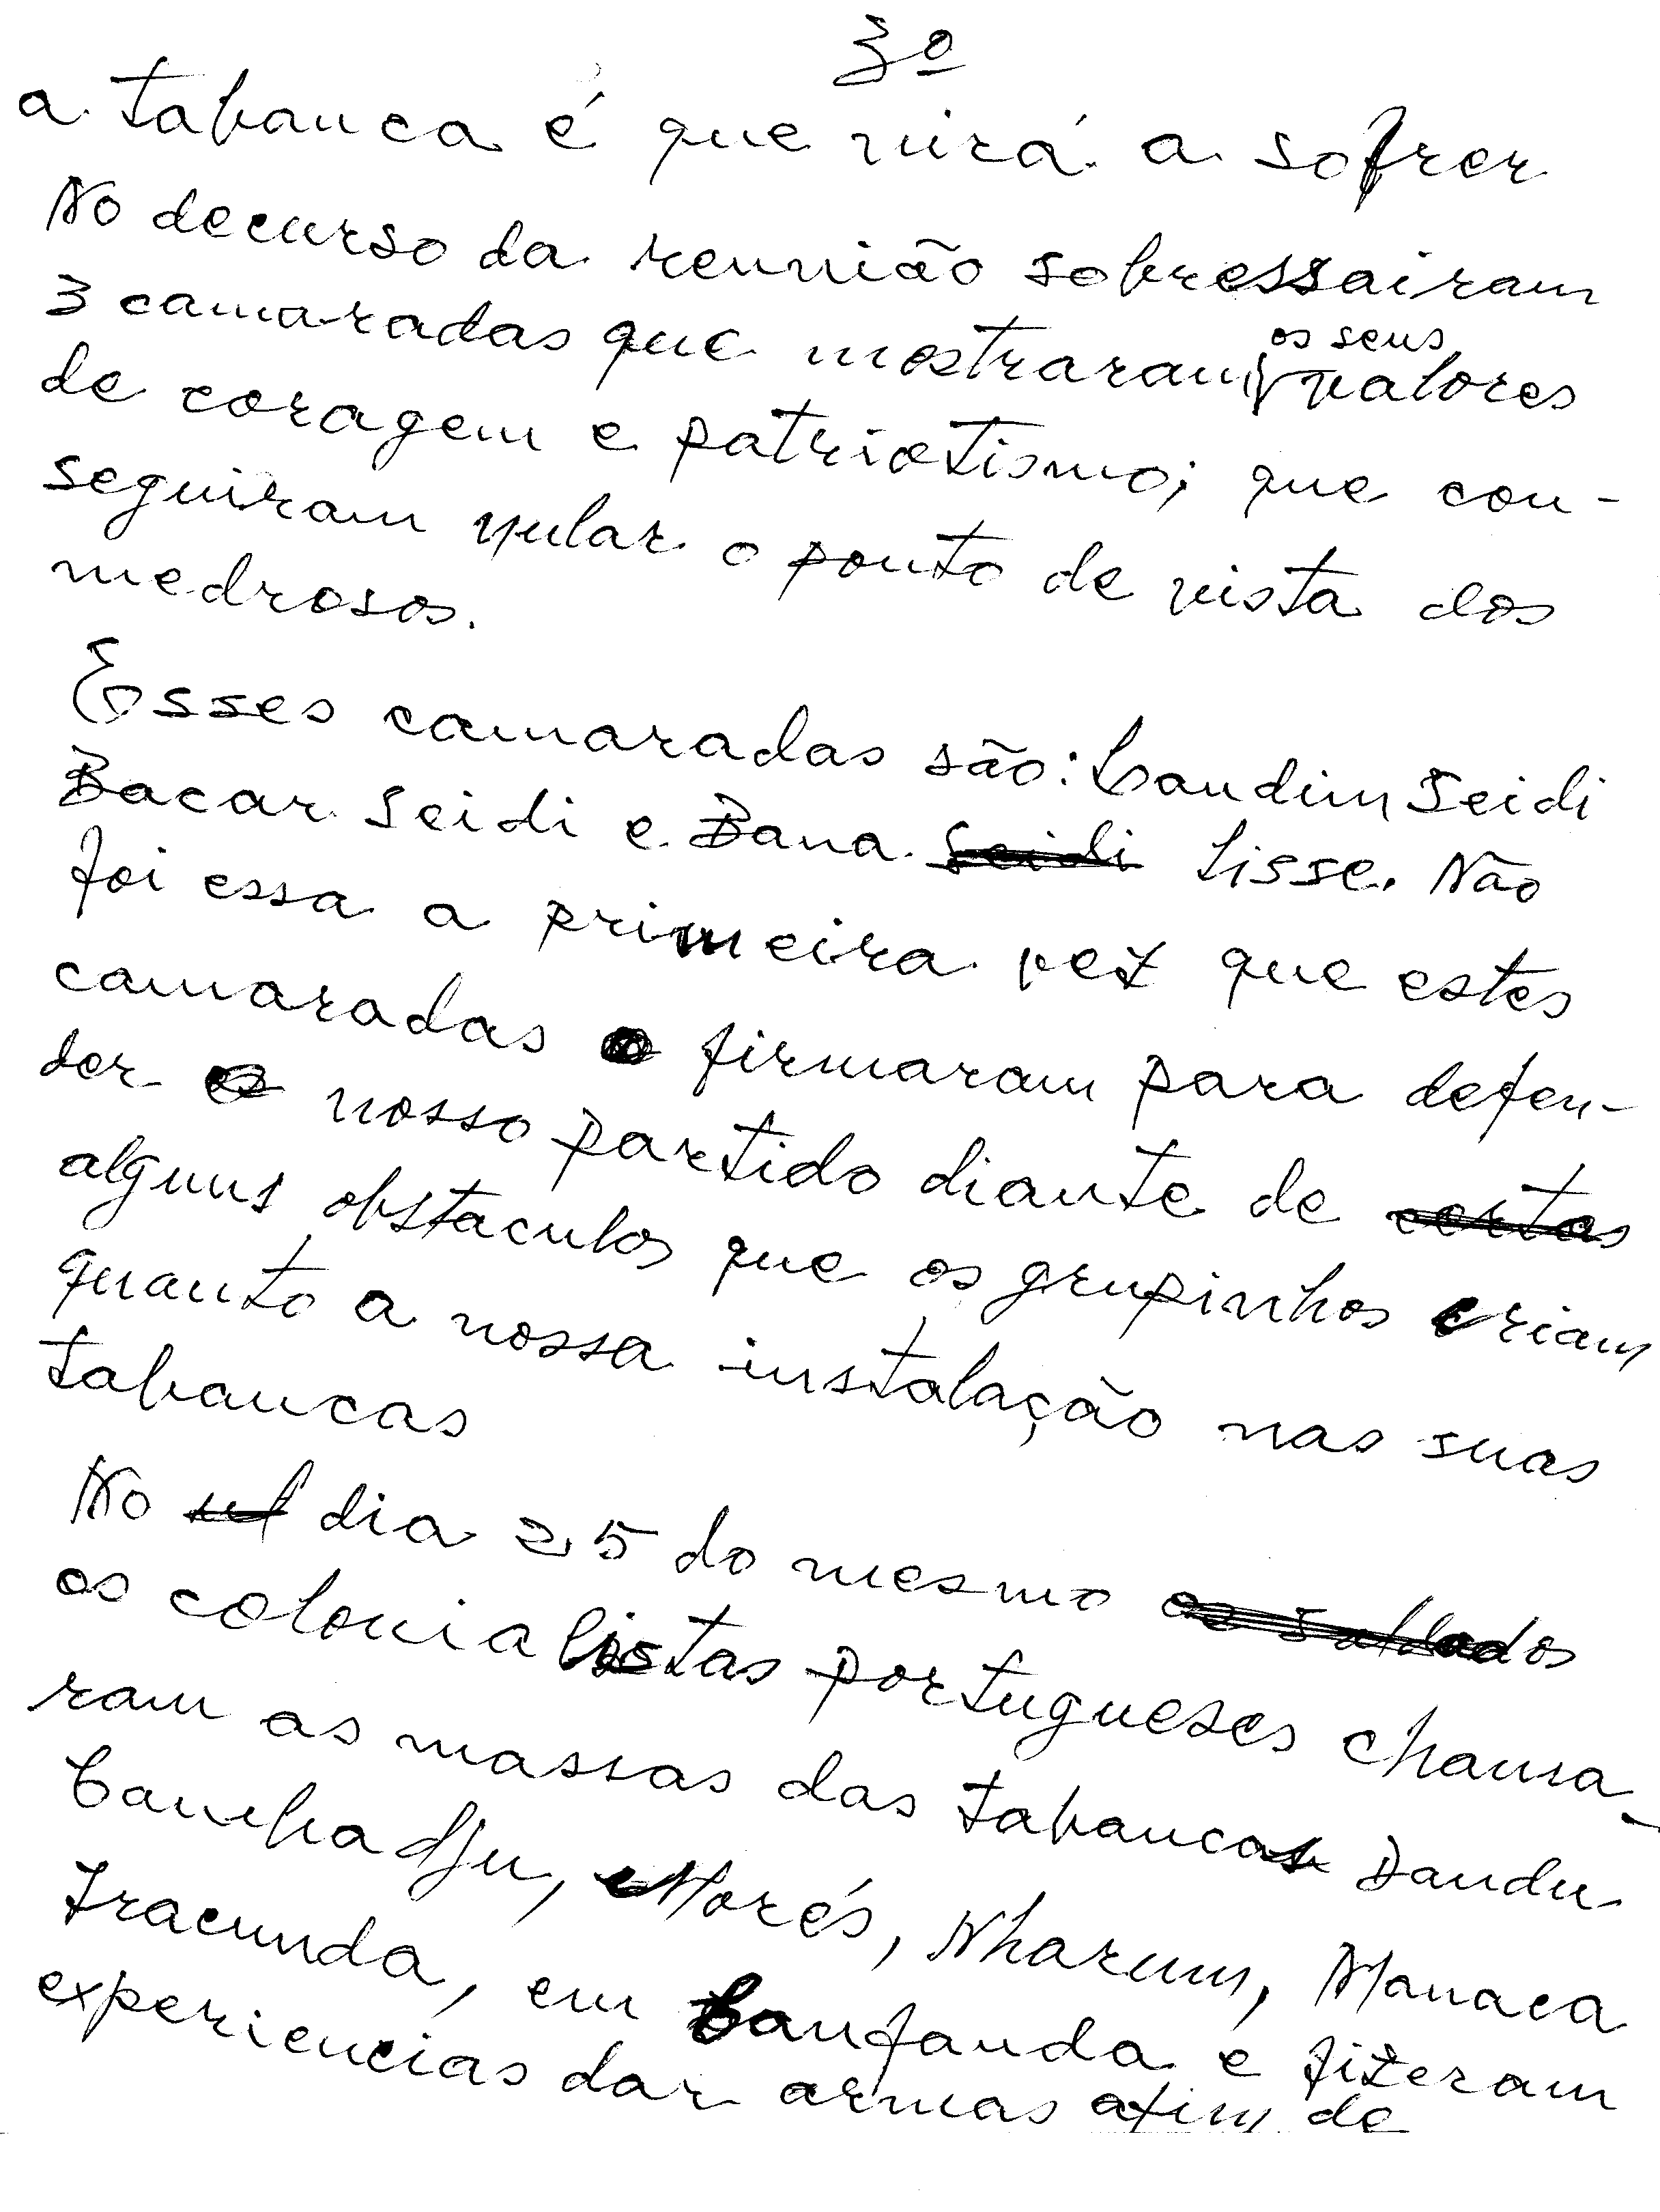 3º
a tabanca é que virá a sofrer
No decurso da reunião sobressairam
3 camaradas que mostraram os seus valores
de coragem e patriotismo; que con-
seguiram nular o ponto de vista dos
medrosos.
Esses camaradas são: Landim Seidi
Bacar Seidi e Bana Seidi Lisse. Não
foi essa a primeira vez que estes
camaradas firmaram para defen-
der o nosso partido diante de certas
alguns obstaculos que os grupinhos criam
quanto a nossa instalação nas suas
tabancas
No dia 25 do mesmo os soldados
os colonialistas portugueses chama-
ram as massas das tabancas Dandu
Canhadju, Morés, Nharum, Manaca
Iracunda, em Canfanda e fizeram
experiencias dar armas afim de